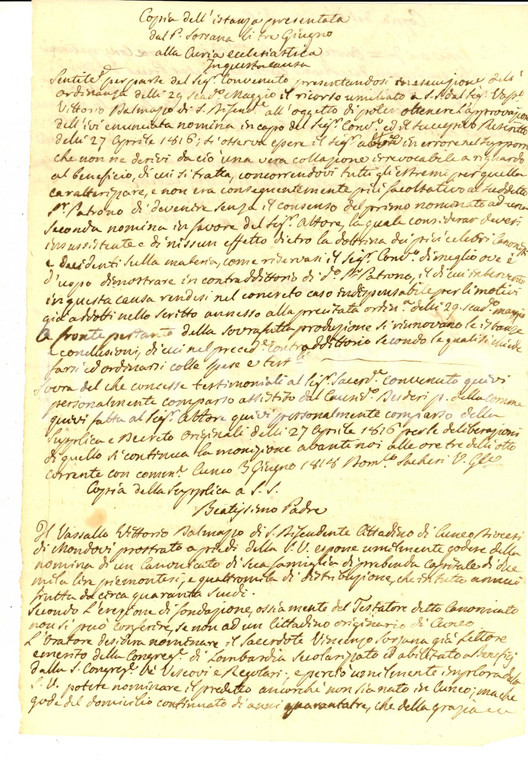 Copia dell'istanza presentata
dal P. Sorsana li tre Giugno
alla Curia ecclesiastica
In questa causa
Sentite per parte del Sig. Convenuto presentandosi in esecuzione dell'
ordinanza delli 29 scad. Maggio il ricorso umiliato a S.S. dal Sig. Vass.
Vittorio Dalmazzo di S. Difend.e all'oggetto di poter ottenere l'approvazione
dell'ivi enunciata nomina in capo del Sig. Conv. ed il successivo Rescritto
delli 27 Aprile 1816; s'osserva essere il Sig. Attore in errore nel supporre
che non ne derivi da ciò una vera collazione irrevocabile a riguardo
al beneficio, di cui si tratta, concorrendovi tutti gli estremi per quella
caratterizzare, e non era conseguentemente più facoltativo al suddetto
Sr. Patrono di devenire senza il consenso del primo nominato ad una
seconda nomina in favore del Sig. Attore, la quale considerar devesi
insussistente e di nissun effetto dietro la dottrina dei più celebri Canonisti
e decidenti sulla materia, come riservasi il Sig. Conv. di meglio ove è
d'uopo dimostrare in contraddittorio di do. Sr. Patrono, il di cui intervento
in questa causa rendesi nel concreto caso indispensabile per li motivi
già addotti nello scritto annesso alla precitata ordin.e delli 29 scad. maggio
A fronte pertanto della sovrascritta produzione si rinnovano le istanze
e conclusioni, di cui nel preced. contraddittorio secondo le quali si chiede
farsi ed ordinarsi colle spese e test.
Sovra del che concesse testimoniali al Sig. Sacerd. convenuto quivi
personalmente comparso assistito dal Causid. p. della comune
quivi fatta al Sig. Attore quivi personalmente comparso della
supplica e Decreto originali delli 27 Aprile 1816 per le deliberazioni
di quello si continua la monizione avanti noi alle ore tre delli otto
corrente con comm. Cuneo 3 Giugno 1818
Copia della Supplica a S.S.
Beatissimo Padre
Il Vassallo Vittorio Dalmazzo di S. Difendente Cittadino di Cuneo Diocesi
di Mondovì prostrato a piedi della S.V. espone umilmente godere della
nomina di un Canonicato di sua famiglia di prebenda capitale di due
mila lire piemontesi, e quattromila di distribuzione, che in tutto annui
frutta da circa quaranta scudi.
Secondo l'erezione di fondazione, ossia mente del Testatore detto Canonicato
non si può conferire, se non ad un Cittadino originario di Cuneo
L'Oratore desidera nominare il Sacerdote Vincenzo Sorsana già Lettore
emerito della Congreg. di Lombardia secolarizzato ed abilitato a Benefizj
dalla S. Congreg. de' Vescovi e Regolari; e perciò umilmente implora dalla
S.V. potere nominare il predetto ancorché non sia nato in Cuneo; ma che
gode del domicilio continuato di anni quarantatre, che della grazia